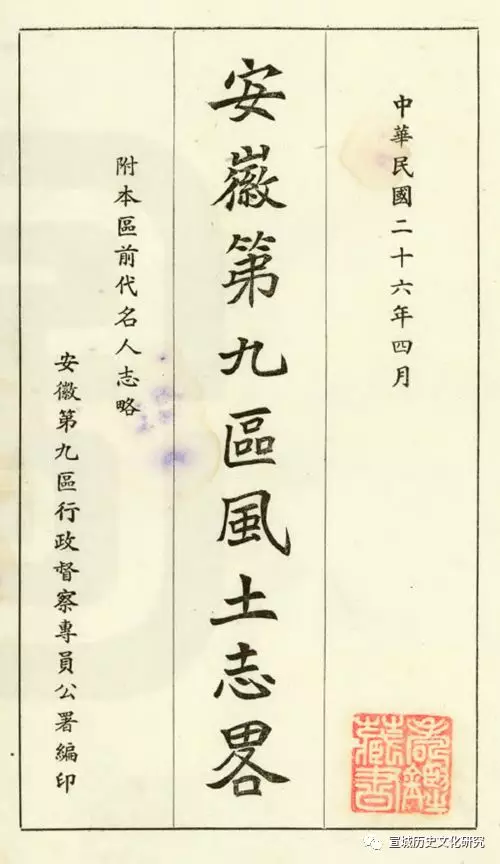 中華民國二十六年四月
安徽第九區風土志畧
附本區前代名人志略
安徽第九區行政督察專員公署編印
宣城历史文化研究